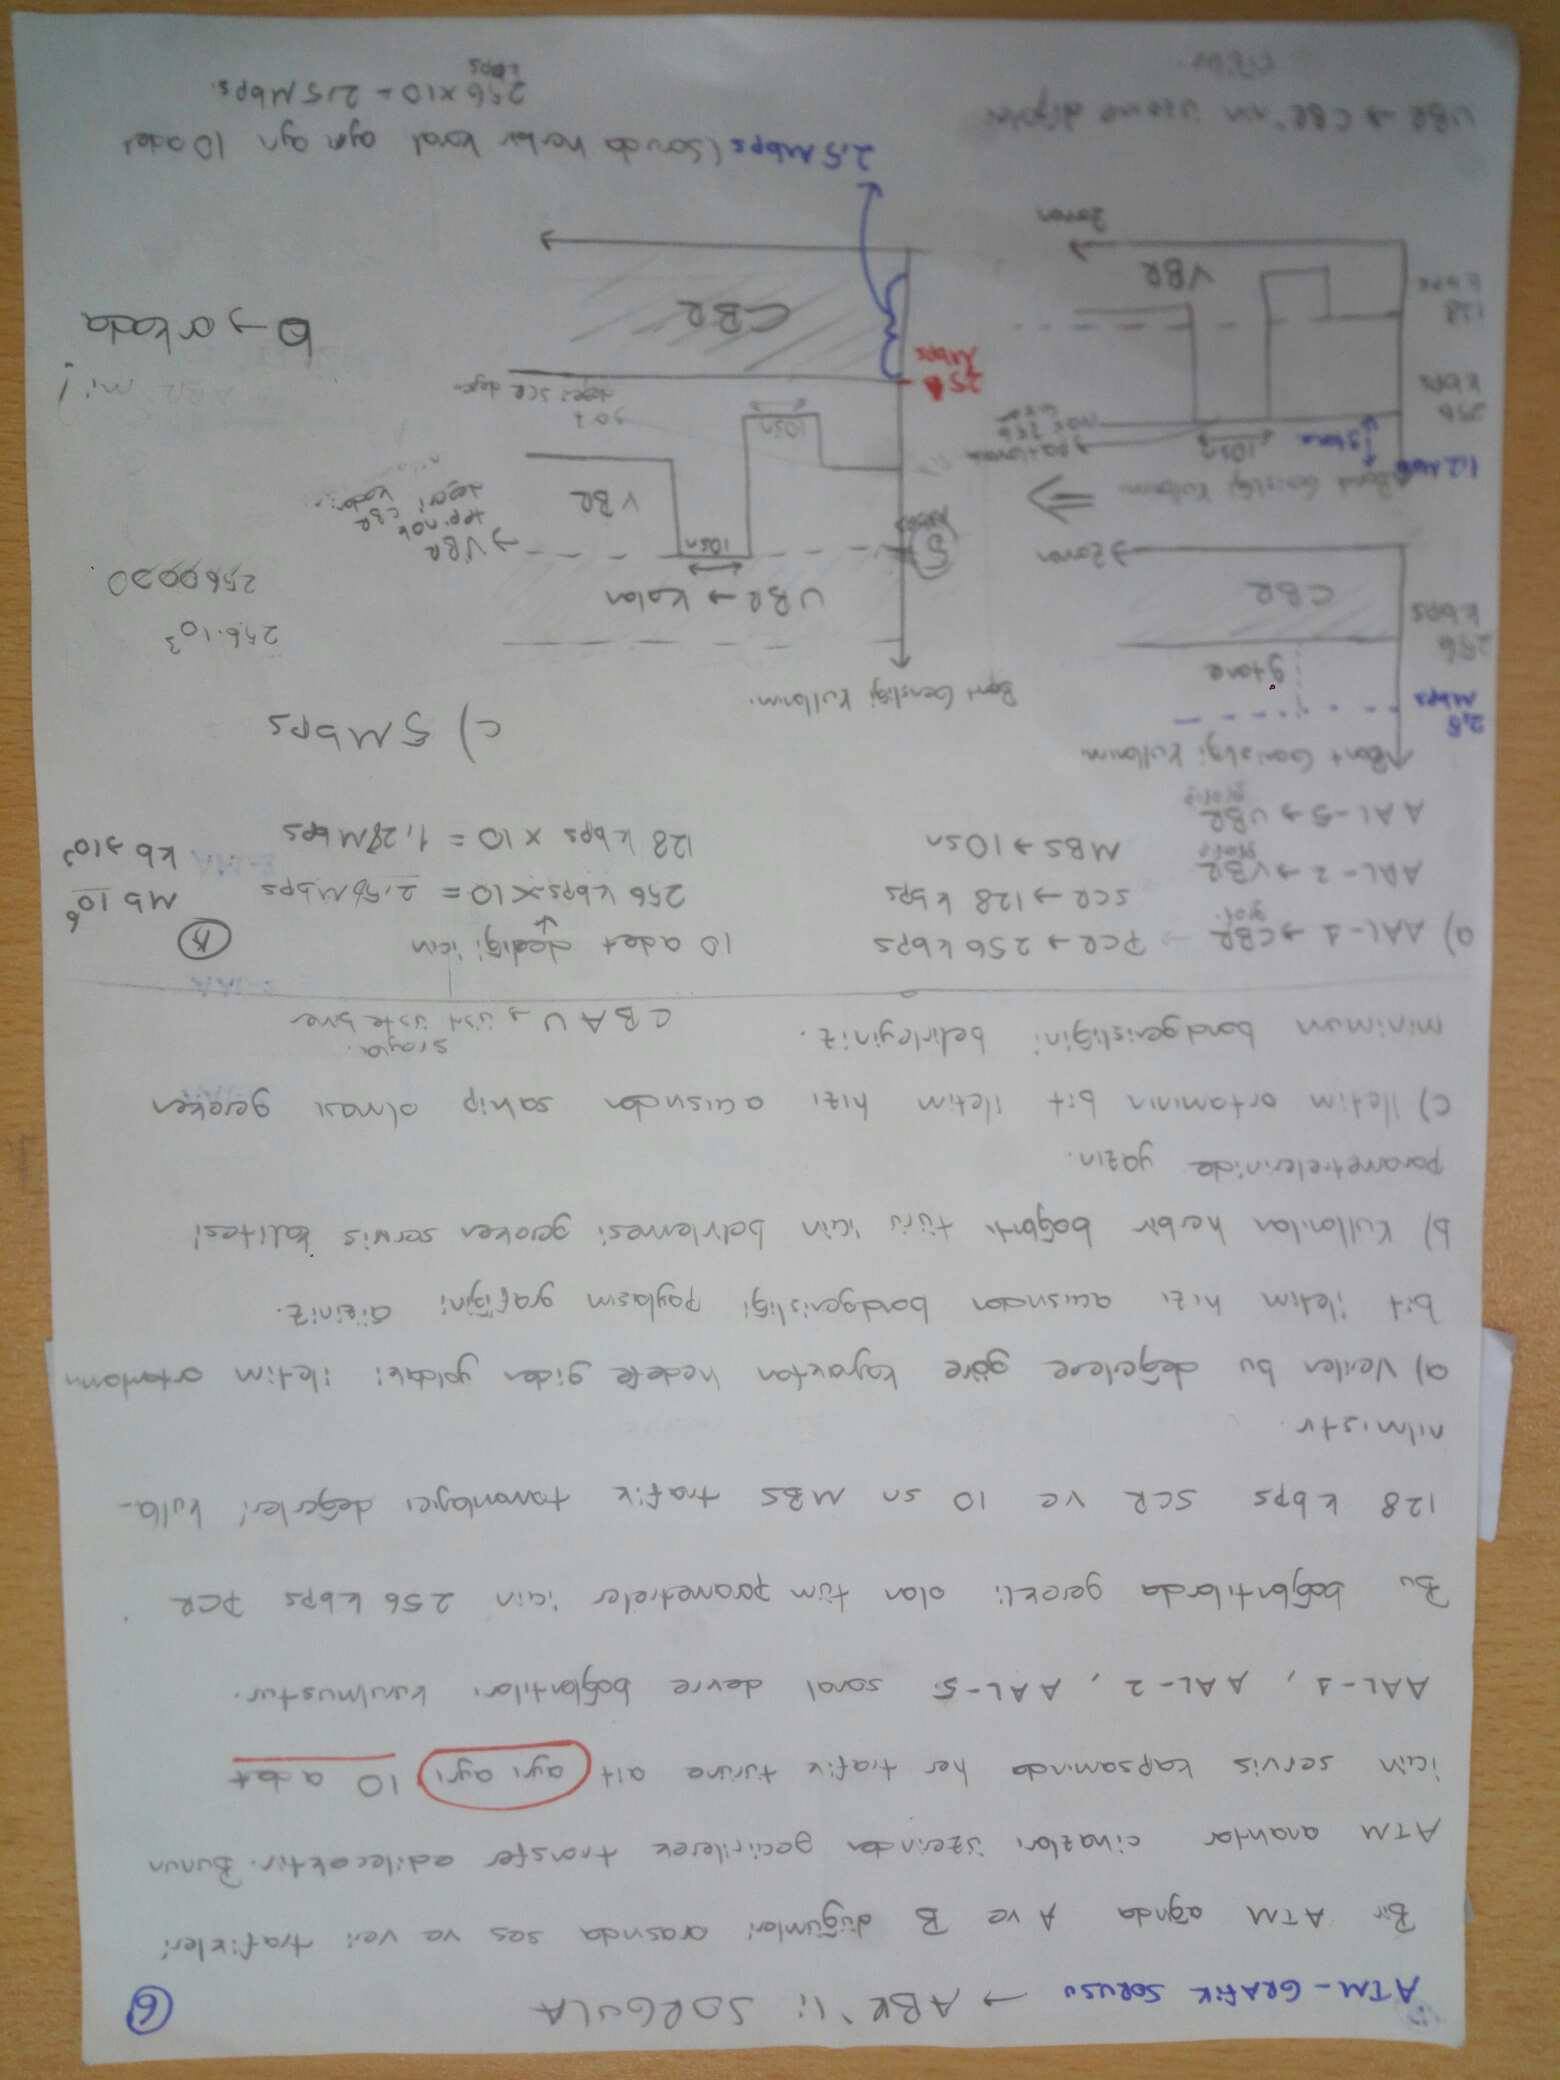 ATM-GRAFİK SORUSU → ABR'li SORGULA
6
Bir ATM ağında A ve B düğümleri arasında ses ve veri trafikleri
ATM anahtar cihazları üzerinden geçirilerek transfer edilecektir. Bunun
için servis kapsamında her trafik türüne ait ayrı ayrı 10 adet
AAL-1, AAL-2, AAL-5 sanal devre bağlantıları kurulmuştur.
Bu bağlantılarda gerekli olan tüm parametreler için 256 kbps PCR
128 kbps SCR ve 10 sn MBS trafik tanımlayıcı değerleri kulla-
nılmıştır.
a) Verilen bu değerlere göre kaynaktan hedefe giden yoldaki iletim ortamlarının
bit iletim hızı açısından bandgenişliği paylaşım grafiğini çiziniz.
b) Kullanılan herbir bağlantı türü için belirlemesi gereken servis kalitesi
parametrelerinide yazın.
c) İletim ortamının bit iletim hızı açısından sahip olması gereken
minimum bandgenişliğini belirleyiniz.
sırayla.
CBAU → üst üste biner
a) AAL-1 → CBR
AAL-2 → VBR
AAL-5 → UBR
PCR → 256 kbps
SCR → 128 kbps
MBS → 10sn
10 adet dediği için
256 kbps × 10 = 2,56 Mbps
128 kbps × 10 = 1,28 Mbps
Mb 10⁶
kb → 10³
Bant Genişliği Kullanımı
2,5 Mbps
9 tane
256 kbps
CBR
Zaman
c) 5 Mbps
256.10³
2560000.
Bant Genişliği Kullanımı
1.2 Mbps
9 tane
10sn
256 kbps
128 kbps
VBR
Zaman
Bant Genişliği Kullanımı
UBR → Kalan
5 Mbps
10sn
→ VBR
tepe nok
değeri CBR
kadar
VBR
10sn
değeri SCR değeri
Mbps
CBR
mi!
b → arkada
2,5 Mbps (Soruda herbir kanal ayrı ayrı 10 adet
256 kbps × 10 = 2,5 Mbps.
UBR → CBR'nin üzerine diğerler